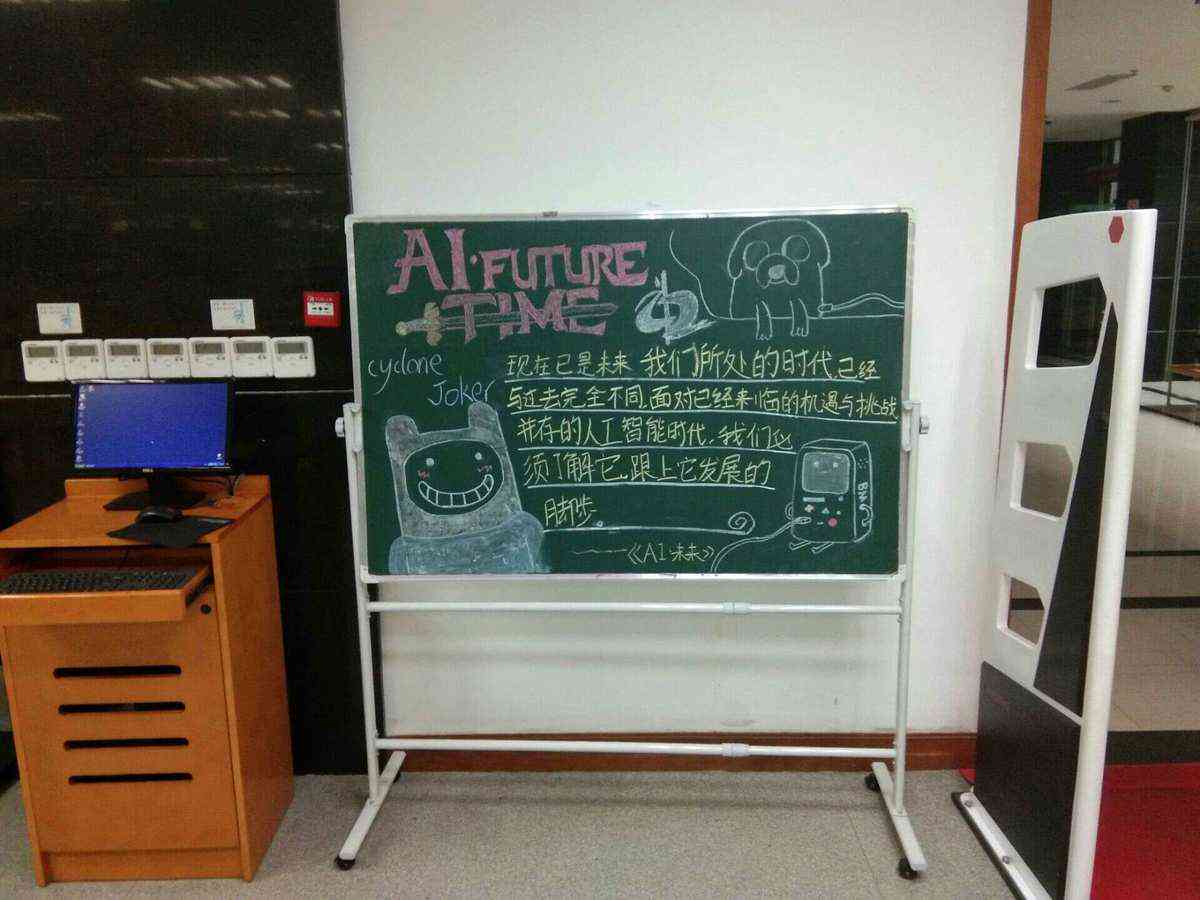 AI·FUTURE
TIME
cyclone
Joker
现在已是未来 我们所处的时代,已经
与过去完全不同,面对已经来临的机遇与挑战
并存的人工智能时代,我们必
须了解它,跟上它发展的
脚步
——《AI·未来》
BMO